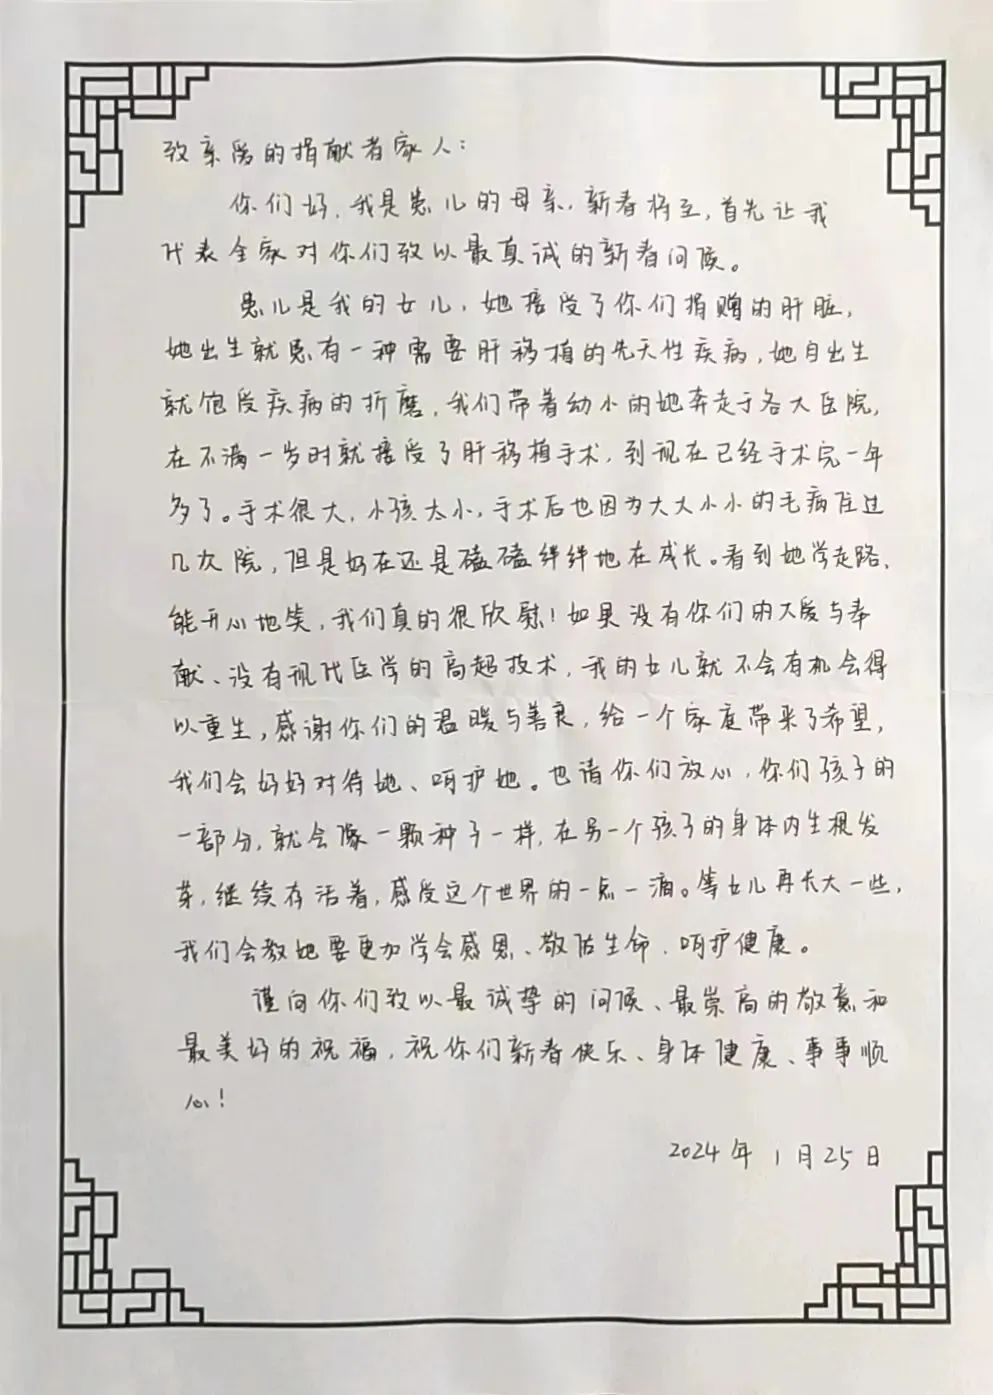 致亲爱的捐献者家人：
你们好，我是患儿的母亲，新春将至，首先让我
代表全家对你们致以最真诚的新春问候。
患儿是我的女儿，她接受了你们捐赠的肝脏，
她出生就患有一种需要肝移植的先天性疾病，她自出生
就饱受疾病的折磨，我们带着幼小的她奔走于各大医院，
在不满一岁时就接受了肝移植手术，到现在已经手术完一年
多了。手术很大，小孩太小，手术后也因为大大小小的毛病住过
几次院，但是好在还是磕磕绊绊地在成长。看到她学走路，
能开心地笑，我们真的很欣慰！如果没有你们的大爱与奉
献、没有现代医学的高超技术，我的女儿就不会有机会得
以重生，感谢你们的温暖与善良，给一个家庭带来了希望，
我们会好好对待她、呵护她。也请你们放心，你们孩子的
一部分，就会像一颗种子一样，在另一个孩子的身体内生根发
芽，继续存活着，感受这个世界的一点一滴。等女儿再长大一些，
我们会教她要更加学会感恩、敬佑生命、呵护健康。
谨向你们致以最诚挚的问候、最崇高的敬意和
最美好的祝福，祝你们新春快乐、身体健康、事事顺
心！
2024年1月25日